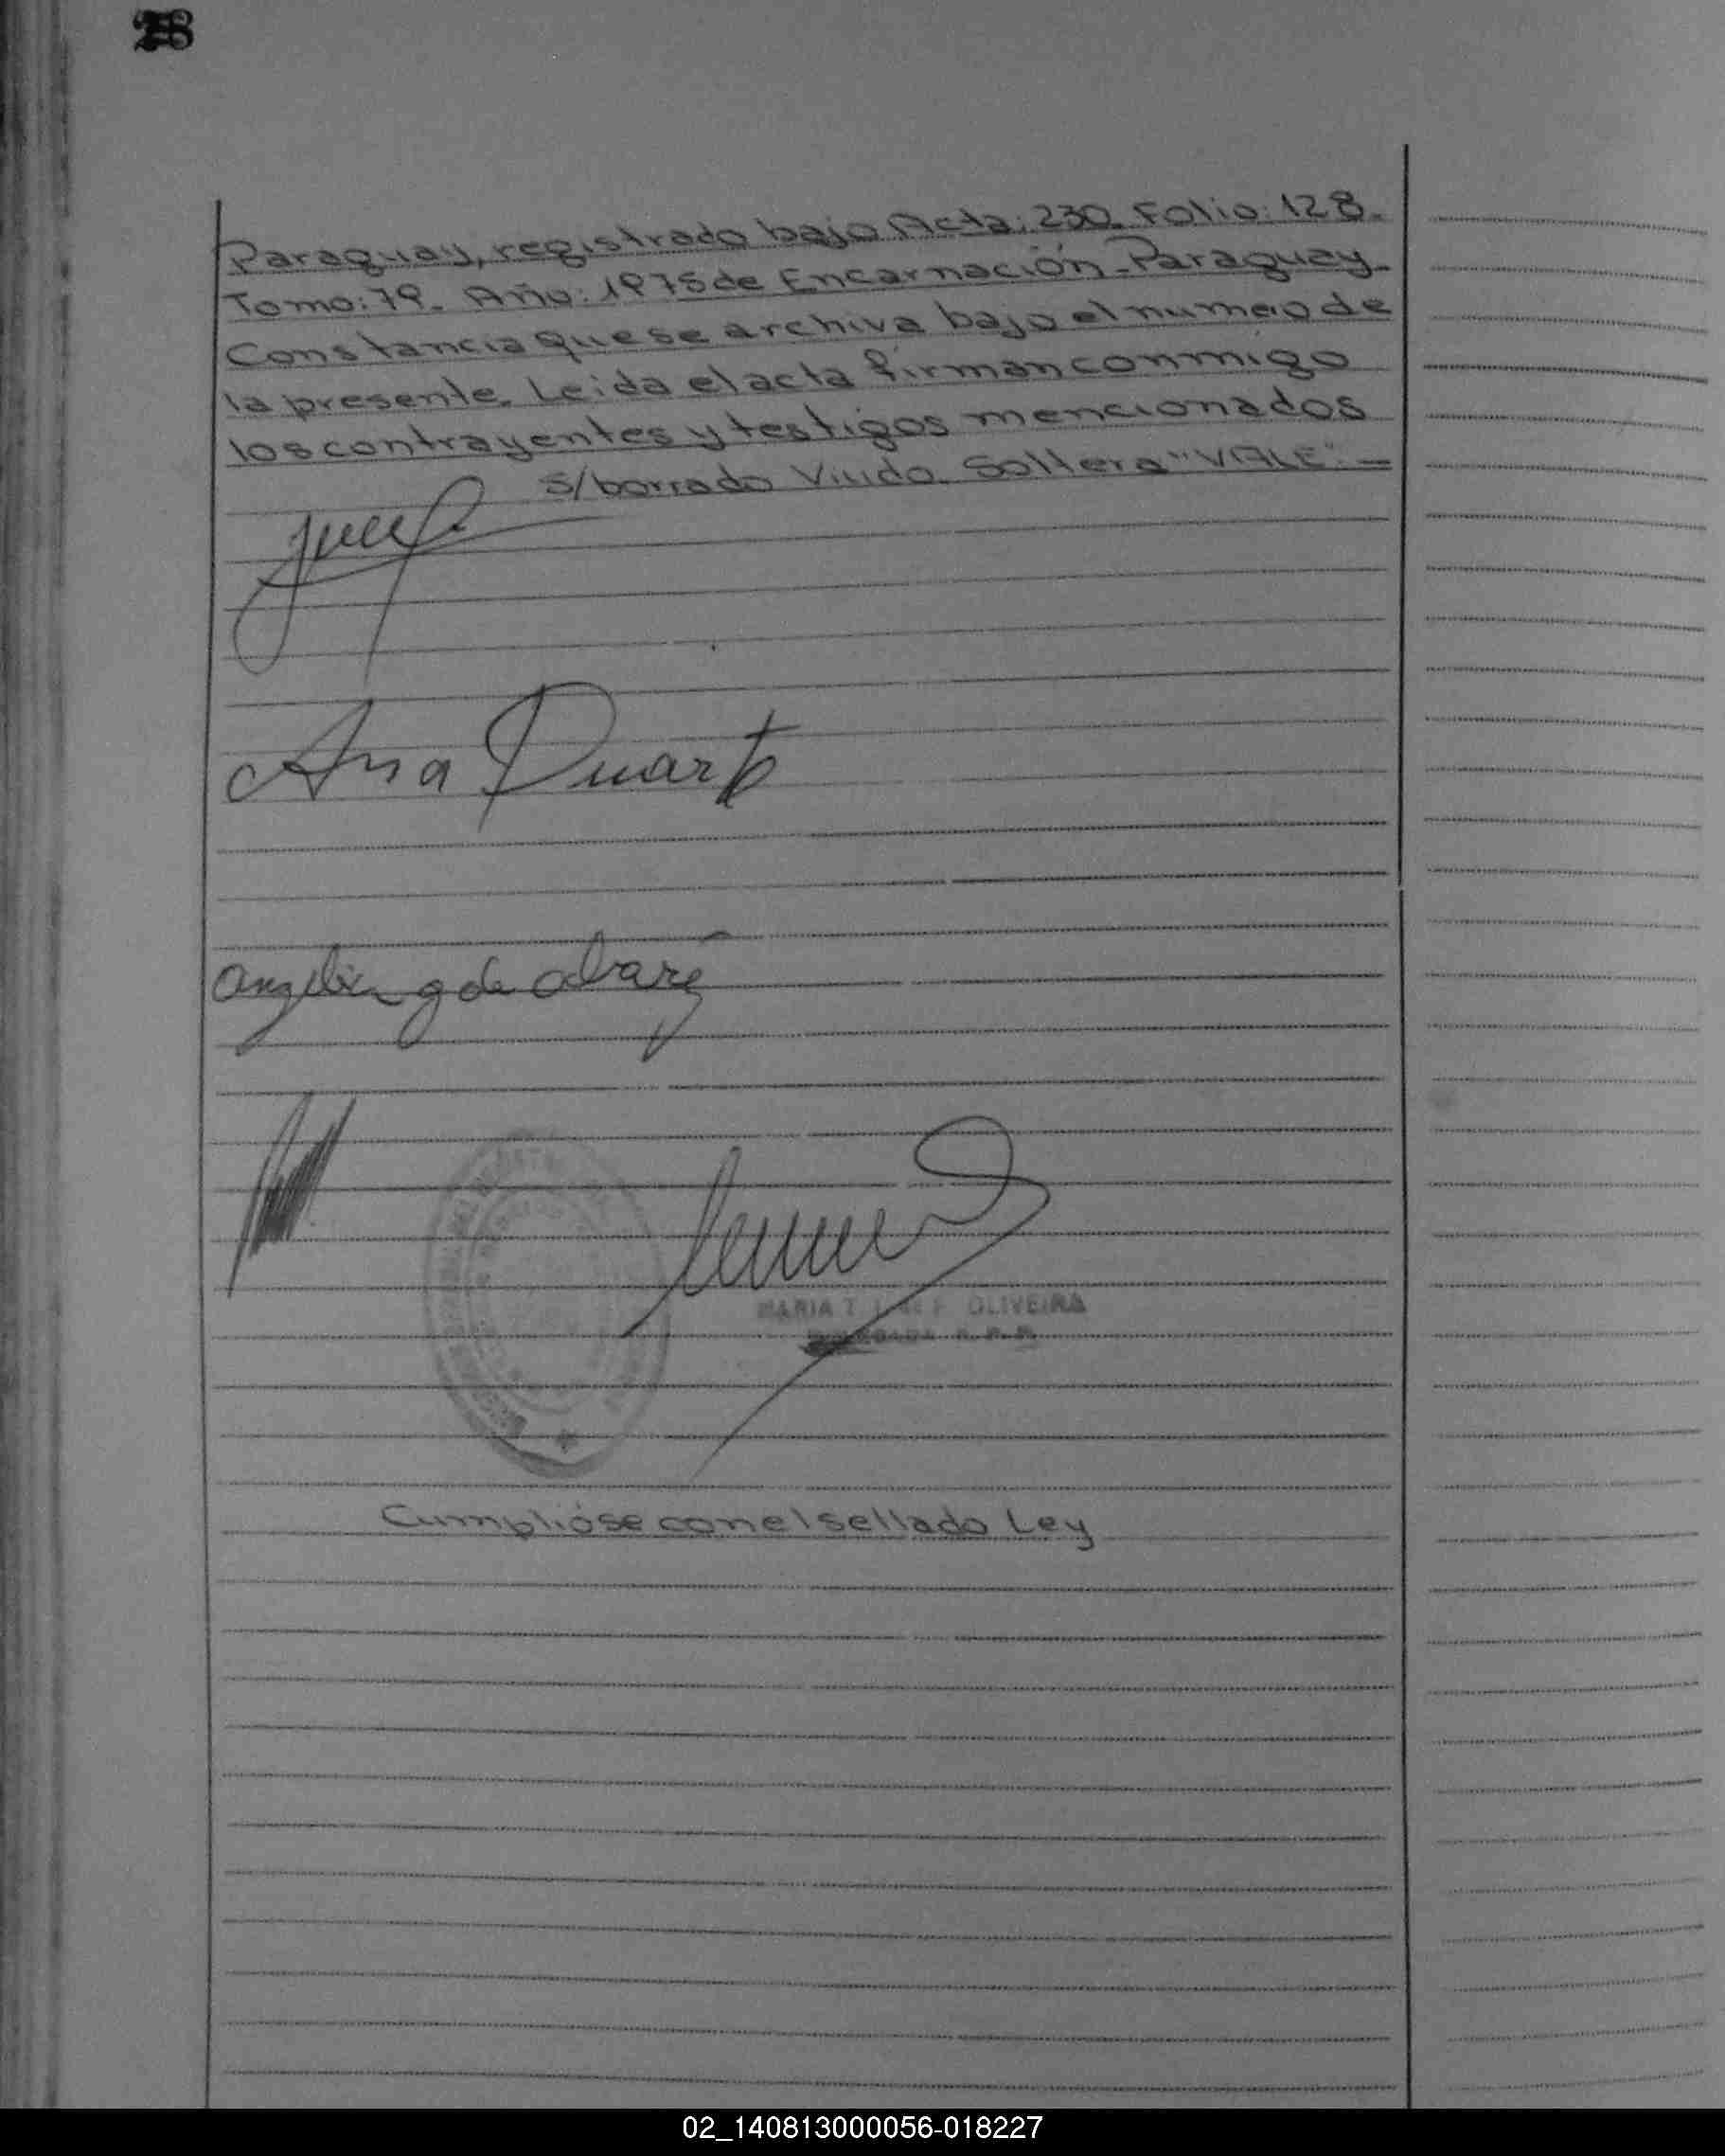 Paraguay, registrado bajo Acta: 230. Folio: 128.
Tomo: 79. Año: 1975 de Encarnación - Paraguay.
Constancia que se archiva bajo el numero de
la presente. Leida el acta firman conmigo
los contrayentes y testigos mencionados
S/borrado Viudo. Soltera "VALE". =
Ana Duarte
MARIA T. OLIVEIRA
Cumplióse con el sellado Ley
02_140813000056-018227